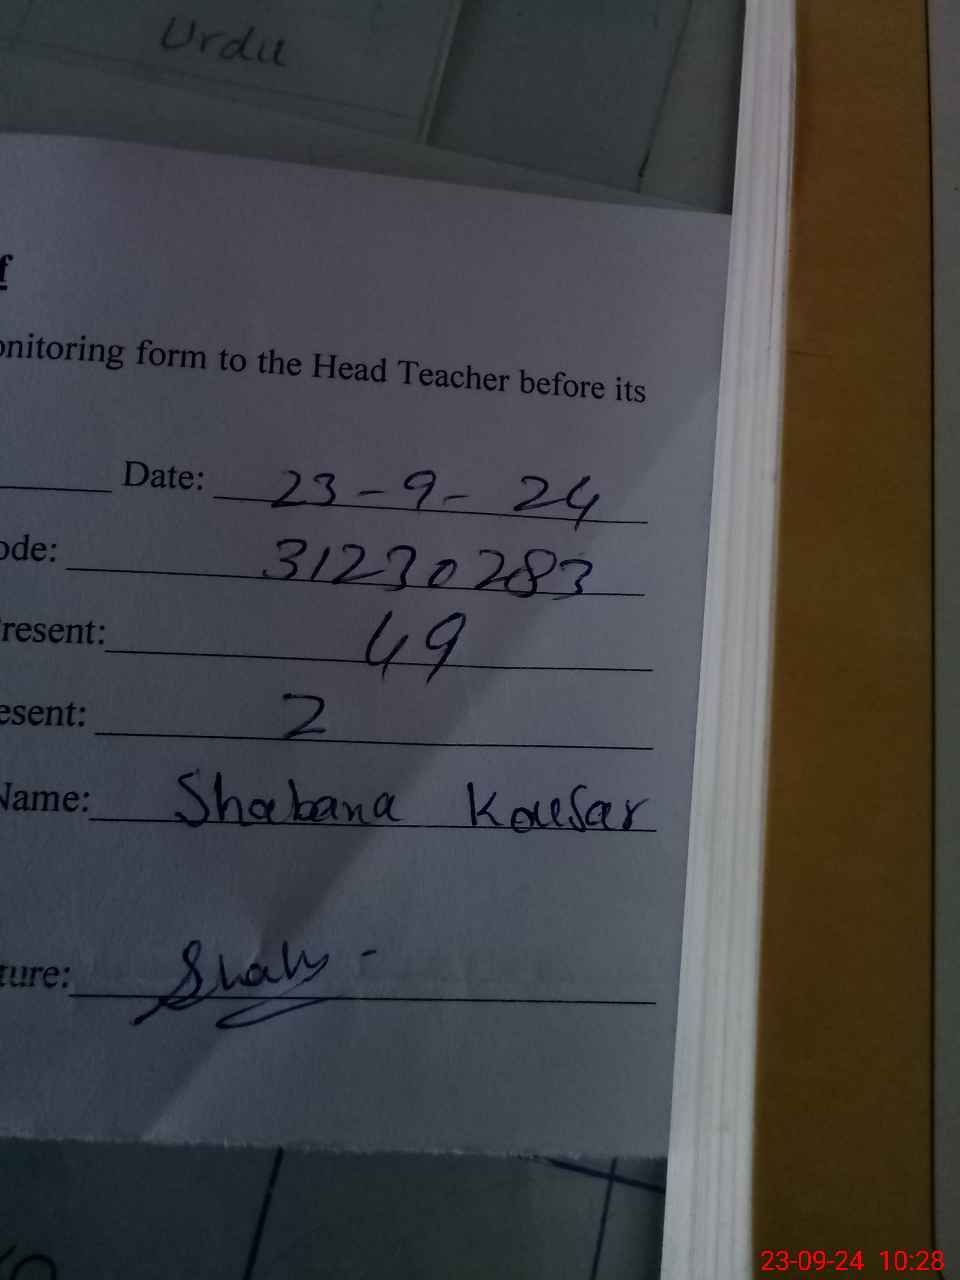 Urdu
f
onitoring form to the Head Teacher before its
Date: 23-9-24
ode: 31230283
resent: 49
esent: 2
Name: Shabana Kousar
ture: Shab
23-09-24 10:28